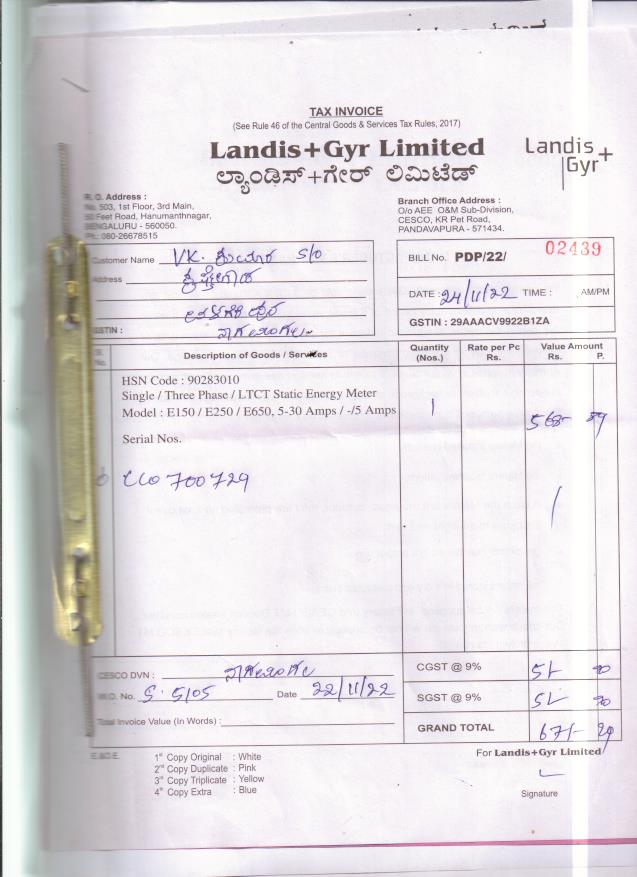 TAX INVOICE
(See Rule 46 of the Central Goods & Services Tax Rules, 2017)
Landis+Gyr Limited
ಲ್ಯಾಂಡಿಸ್+ಗೇರ್ ಲಿಮಿಟೆಡ್
Landis+
Gyr
R. O. Address :
No. 503, 1st Floor, 3rd Main,
50 Feet Road, Hanumanthnagar,
BENGALURU - 560050.
Ph.: 080-26678515
Branch Office Address :
O/o AEE O&M Sub-Division,
CESCO, KR Pet Road,
PANDAVAPURA - 571434.
Customer Name VK. ಕುಮಾರ S/o
Address
GSTIN : ನಾಗಮಂಗಲ
BILL No. PDP/22/ 02439
DATE : 24/11/22 TIME : AM/PM
GSTIN : 29AAACV9922B1ZA
Sl. No. Description of Goods / Services Quantity (Nos.) Rate per Pc Rs. Value Amount Rs. P.
HSN Code : 90283010
Single / Three Phase / LTCT Static Energy Meter
Model : E150 / E250 / E650, 5-30 Amps / -/5 Amps 1 568-
Serial Nos.
700729
CESCO DVN : ನಾಗಮಂಗಲ
W.O. No. S-5105 Date 22/11/22
Total Invoice Value (In Words) :
CGST @ 9%
SGST @ 9%
GRAND TOTAL 671-
E.&O.E.
1st Copy Original : White
2nd Copy Duplicate : Pink
3rd Copy Triplicate : Yellow
4th Copy Extra : Blue
For Landis+Gyr Limited
Signature